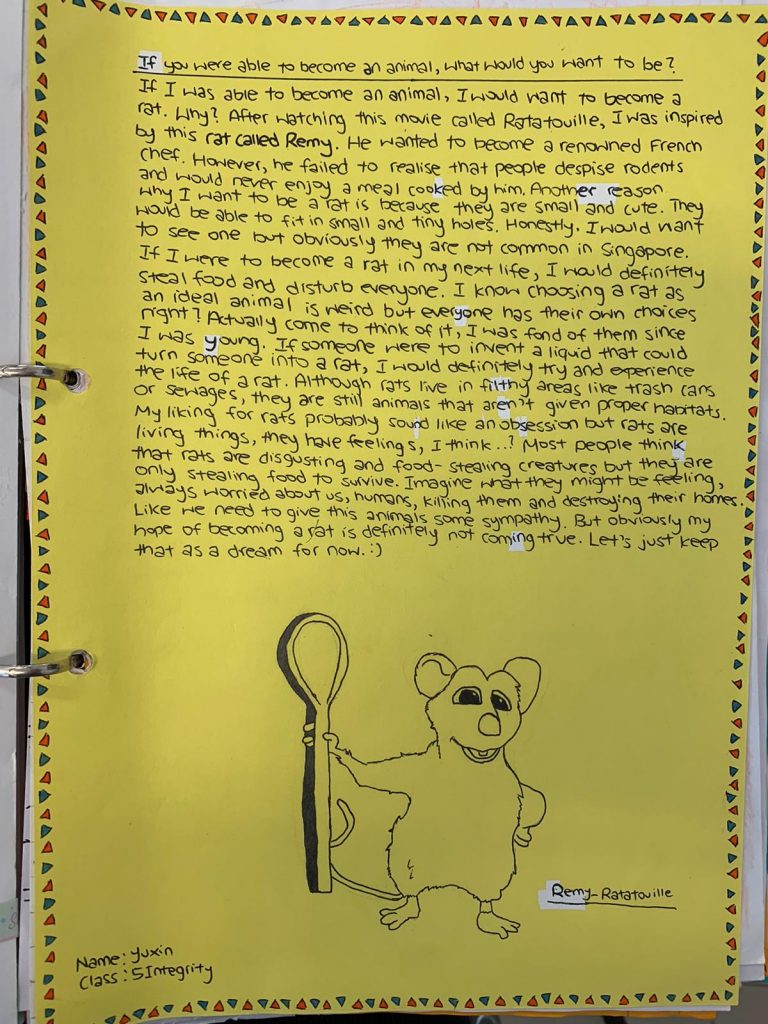 If you were able to become an animal, what would you want to be?
If I was able to become an animal, I would want to become a
rat. Why? After watching this movie called Ratatouille, I was inspired
by this rat called Remy. He wanted to become a renowned French
chef. However, he failed to realise that people despise rodents
and would never enjoy a meal cooked by him. Another reason
why I want to be a rat is because they are small and cute. They
would be able to fit in small and tiny holes. Honestly, I would want
to see one but obviously they are not common in Singapore.
If I were to become a rat in my next life, I would definitely
steal food and disturb everyone. I know choosing a rat as
an ideal animal is weird but everyone has their own choices
right? Actually come to think of it, I was fond of them since
I was young. If someone were to invent a liquid that could
turn someone into a rat, I would definitely try and experience
the life of a rat. Although rats live in filthy areas like trash cans
or sewages, they are still animals that aren't given proper habitats.
My liking for rats probably sound like an obsession but rats are
living things, they have feelings, I think...? Most people think
that rats are disgusting and food-stealing creatures but they are
only stealing food to survive. Imagine what they might be feeling,
always worried about us, humans, killing them and destroying their homes.
Like we need to give this animals some sympathy. But obviously my
hope of becoming a rat is definitely not coming true. Let's just keep
that as a dream for now. :)
Remy-Ratatouille
Name: Yuxin
Class: 5Integrity